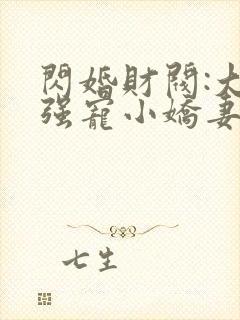 閃婚財閥:大
強寵小嬌妻
七生